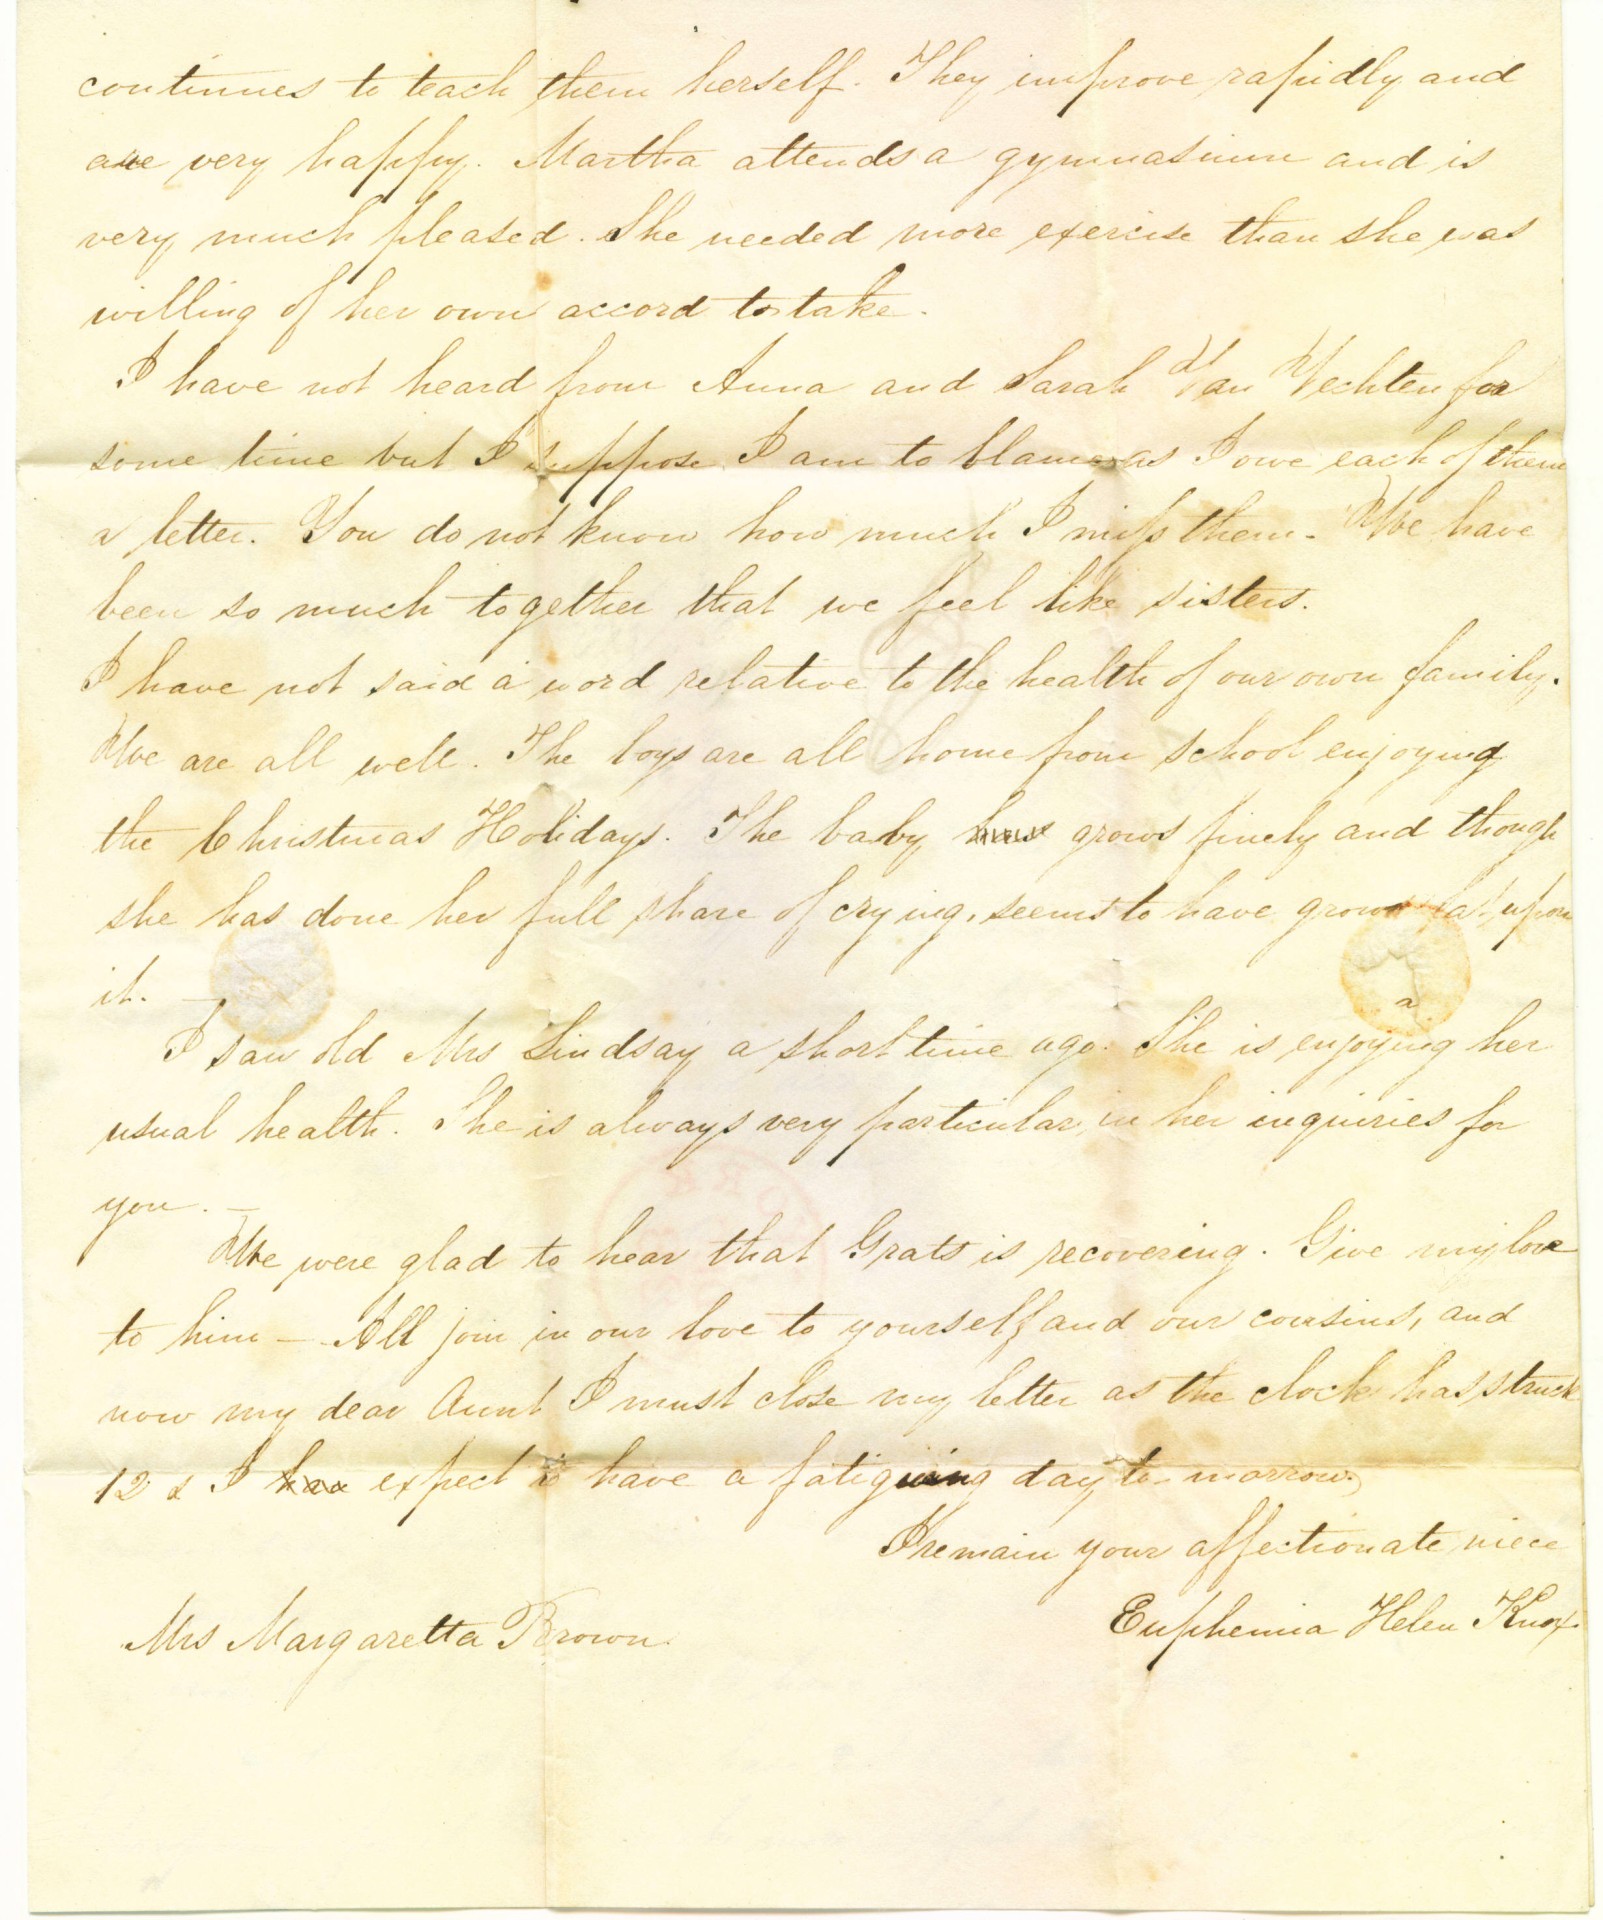 continues to teach them herself. They improve rapidly and
are very happy. Martha attends a gymnasium and is
very much pleased. She needed more exercise than she was
willing of her own accord to take.
I have not heard from Anna and Sarah Van Vechten for
some time but I suppose I am to blame as I owe each of them
a letter. You do not know how much I miss them. We have
been so much together that we feel like sisters.
I have not said a word relative to the health of our own family.
We are all well. The boys are all home from school enjoying
the Christmas Holidays. The baby has grows finely and though
she has done her full share of crying, seems to have grown fat upon
it. —
I saw old Mrs Lindsay a short time ago. She is enjoying her
usual health. She is always very particular in her inquiries for
you. —
We were glad to hear that Grats is recovering. Give my love
to him — All join in our love to yourself and our cousins, and
now my dear Aunt I must close my letter as the clock has struck
12 & I expect to have a fatiguing day to-morrow.
I remain your affectionate niece
Euphemia Helen Knox.
Mrs Margaretta Brown.